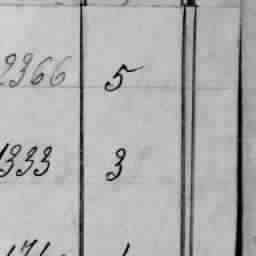 2366 5
1333 3